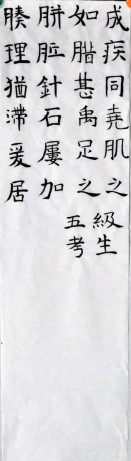 成疾同堯肌之
如腊甚禹足之
胼胝針石屢加
腠理猶滯爰居
五級
考生